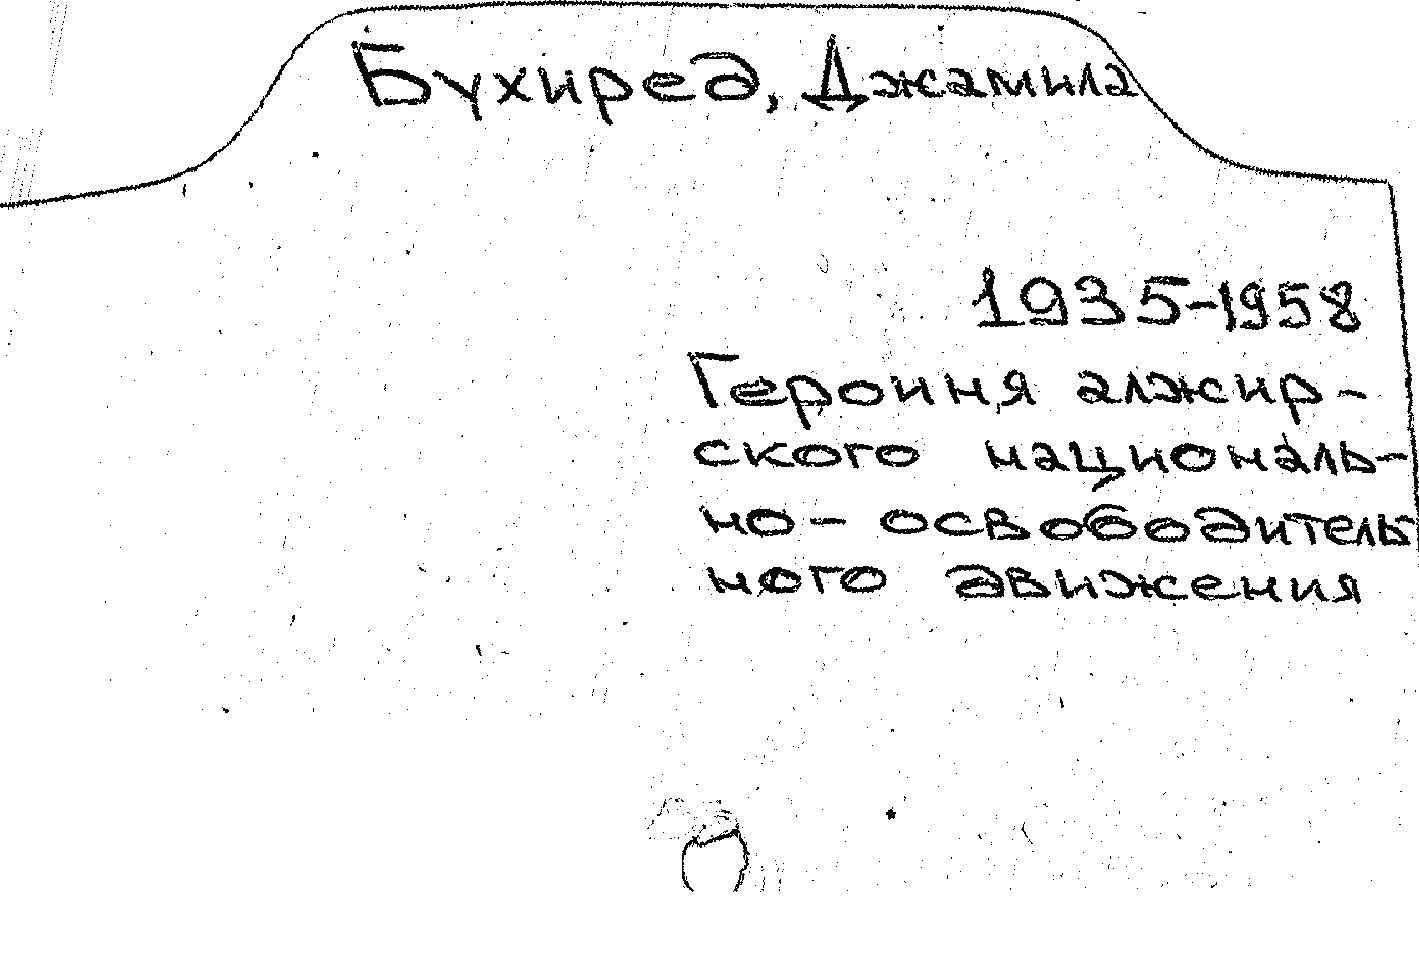 Бухиред, Джамила
1935-1958
Героиня алжир-
ского националь-
но-освободитель
ного движения